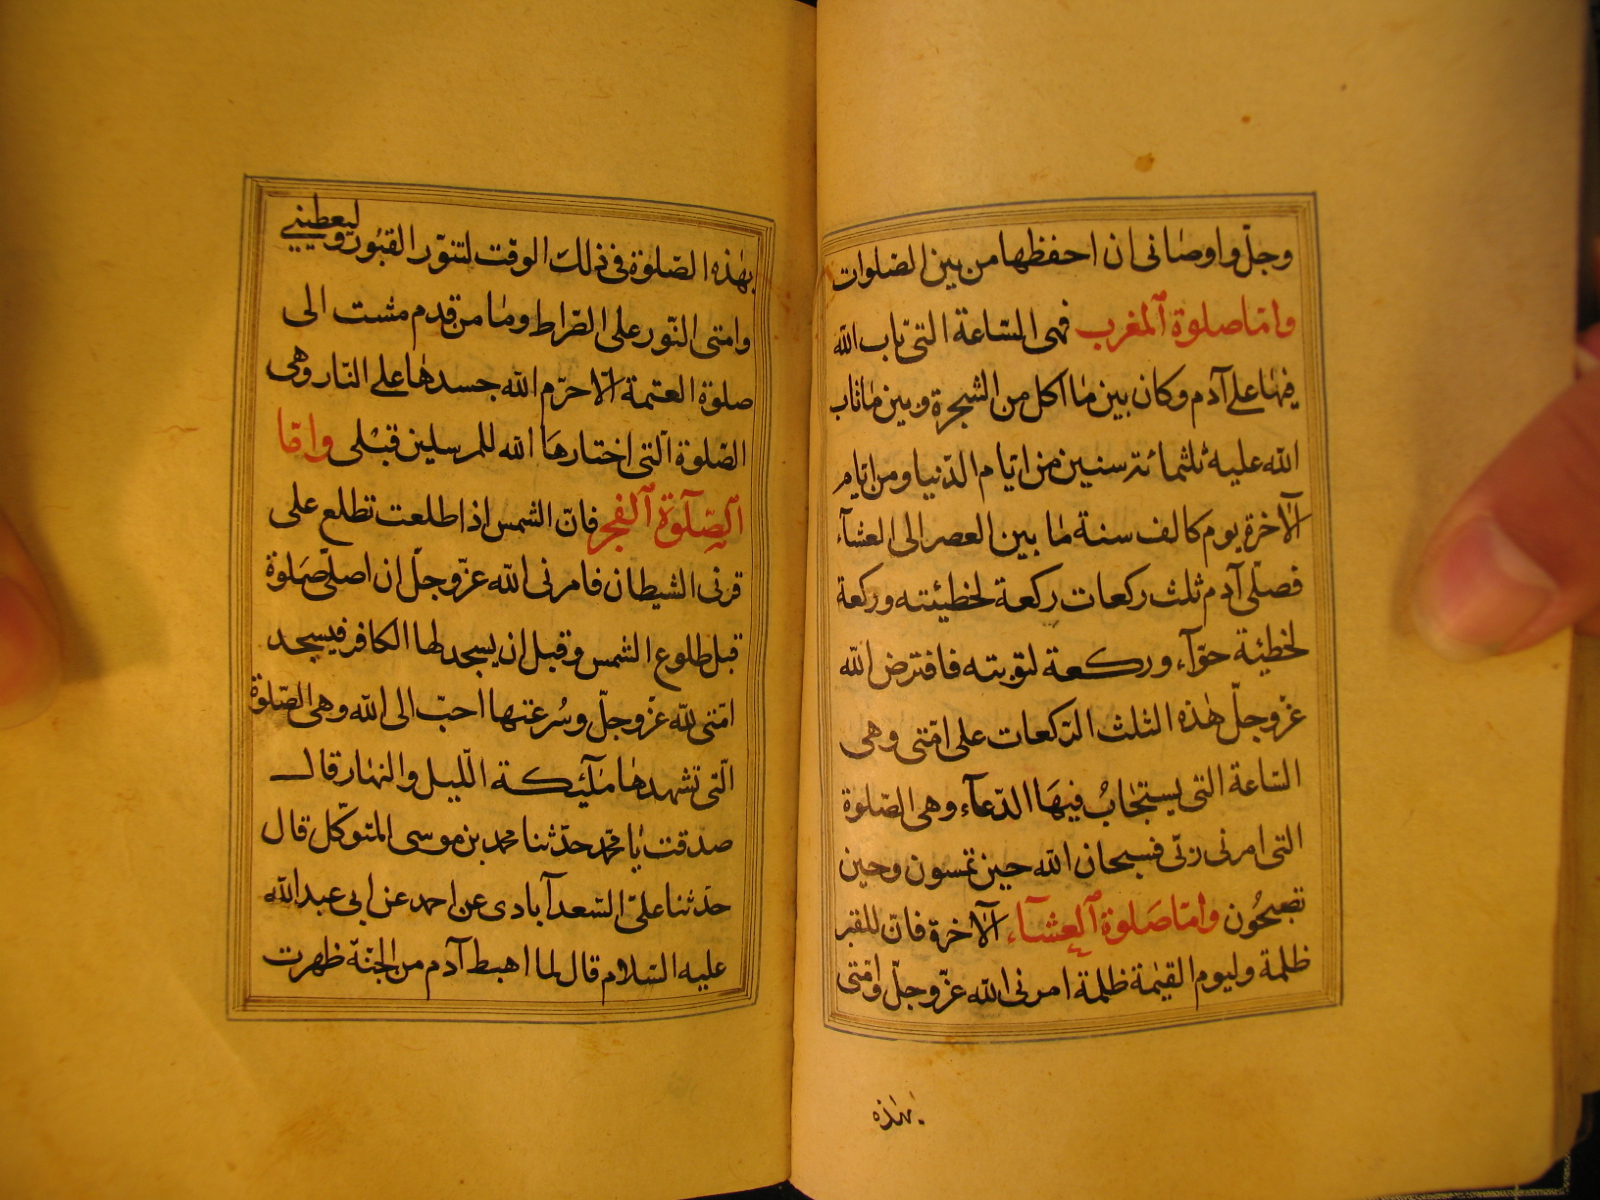 وجلّ واوصانى ان احفظها من بين الصلوات
وامّا صلوة المغرب فهى الساعة التى تاب الله
فيها على آدم وكان بين ما اكل من الشجرة وبين ما تاب
الله عليه ثلثمائة سنين من ايّام الدّنيا ومن ايّام
الآخرة يوم كالف سنة ما بين العصر الى العشآء
فصلّى آدم ثلث ركعات ركعة لخطيئته وركعة
لخطيئة حوّآء وركعة لتوبته فافترض الله
عزّ وجلّ هذه الثلث الرّكعات على امّتى وهى
السّاعة التى يستجاب فيها الدّعآء وهى الصّلوة
التى امرنى ربّى فسبحان الله حين تمسون وحين
تصبحُون وامّا صَلوة العشآء الآخرة فانّ للقبر
ظلمة وليوم القيٰمة ظلمة امرنى الله عزّ وجلّ وامّتى
بهٰذه
بهٰذه الصّلوة فى ذلك الوقت لتنوّر القبُور وليعطينى
وامتى النّور على الصّراط وما من قدم مشت الى
صلوة العتمة الّا حرّم الله جسدها على النّار وهى
الصّلوة التى اختارها الله للمرسلين قبلى وامّا
الصّلوة الفجر فانّ الشمس اذا طلعت تطلع على
قرنى الشيطان فامرنى الله عزّ وجلّ ان اصلّى صَلوة
قبل طلوع الشمس وقبل ان يسجد لها الكافر فيسجد
امّتى لله عزّ وجلّ وسُرعتها احبّ الى الله وهى الصّلوة
الّتى تشهدها ملآئكة اللّيل والنهار قال
صدقت يا محمّد حدّثنا محمد بن موسى المتوكّل قال
حدّثنا علىّ السّعدآبادى عن احمد عن ابى عبد الله
عليه السّلام قال لما اهبط آدم من الجنّة ظهرت